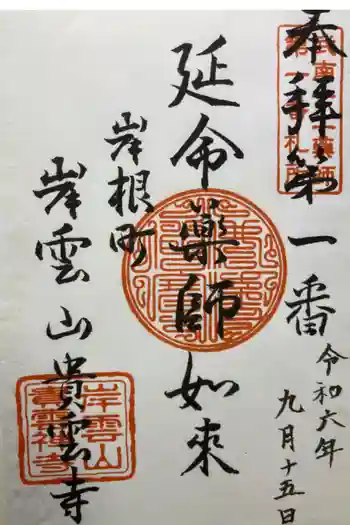 奉拝 第一番
令和六年
九月十五日
延命薬師如来
岸根町
岸雲山貴雲寺
岸雲山
貴雲禅寺